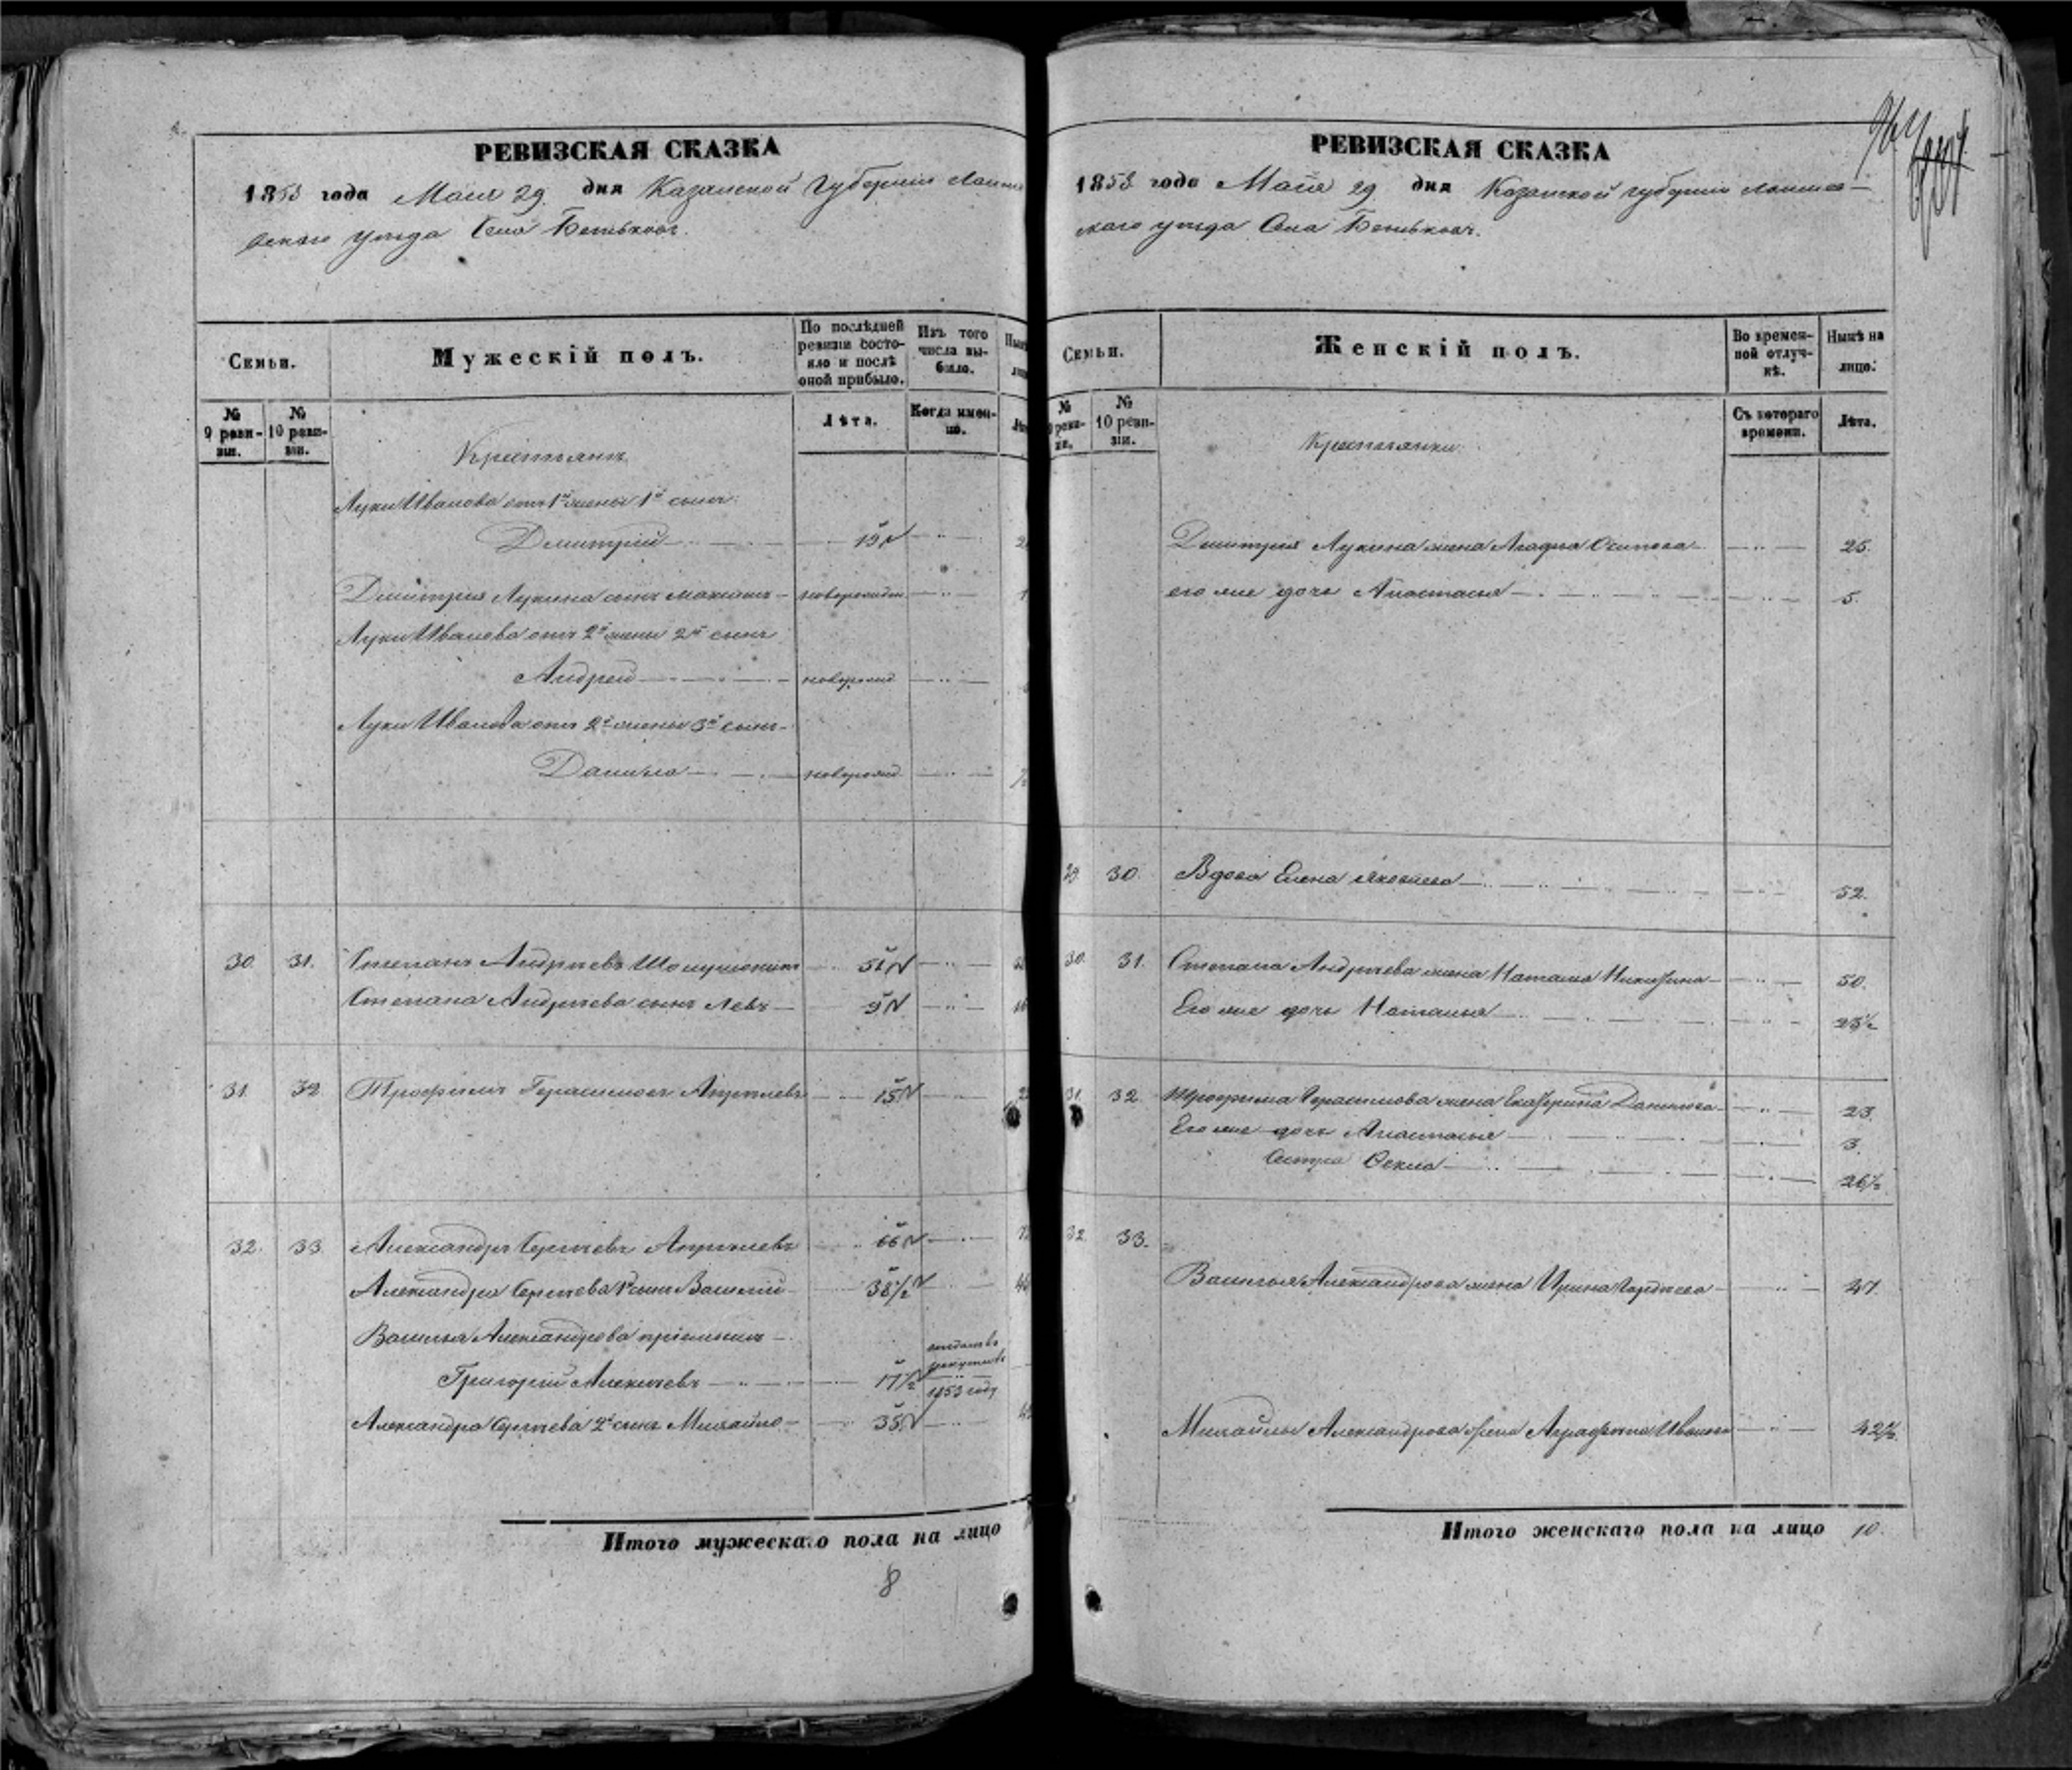 РЕВИЗСКАЯ СКАЗКА
1858 года Мая 29 дня Казанской Губернии Лаише
вскаго уѣзда Села Бетьковъ.
Семьи.
Мужескій полъ.
По послѣдней ревизіи состояло и послѣ оной прибыло.
Изъ того числа выбыло.
№ 9 ревизіи.
№ 10 ревизіи.
Лѣта.
Когда именно.
Крестьянъ
Луки Иванова отъ 1й жены 1й сынъ
Дмитрій 19
Дмитрія Лукина сынъ Максимъ новорожден
Луки Иванова отъ 2й жены 2й сынъ
Андрей новорожд
Луки Иванова отъ 2й жены 3й сынъ
Данила новорожд
30. 31. Степанъ Андреевъ 51
Степана Андреева сынъ Левъ 9
31. 32 Трофимъ Герасимовъ 15
32. 33. Александръ Сергѣевъ 66
Александра Сергѣева 1й сынъ Василій 38½
Василья Александрова пріемышъ
Григорій Алексѣевъ 17½ отданъ въ рекруты въ 1853 году
Александра Сергѣева 2й сынъ Михайло 35
Итого мужескаго пола на лицо
8
РЕВИЗСКАЯ СКАЗКА
1858 года Мая 29 дня Казанской губерніи Лаишев-
скаго уѣзда Села Бетьковъ.
Семьи.
Женскій полъ.
Во временной отлучкѣ.
Нынѣ на лицо.
№ 10 ревизіи.
Съ котораго времени.
Лѣта.
Крестьянки
Дмитрія Лукина жена Агафья Осипова 25.
его же дочь Анастасья 5.
29 30. Вдова Елена Яковлева 52.
30. 31. Степана Андреева жена Наталья Никифорова 50.
Его же дочь Наталья
31. 32. Трофима Герасимова жена Екатерина Данилова 23.
Его же дочь Анастасья 3.
Сестра Фекла 26½
32. 33.
Василья Александрова жена Ирина Гордѣева 47.
Михайлы Александрова жена Аграфена Иванова
Итого женскаго пола на лицо 10.